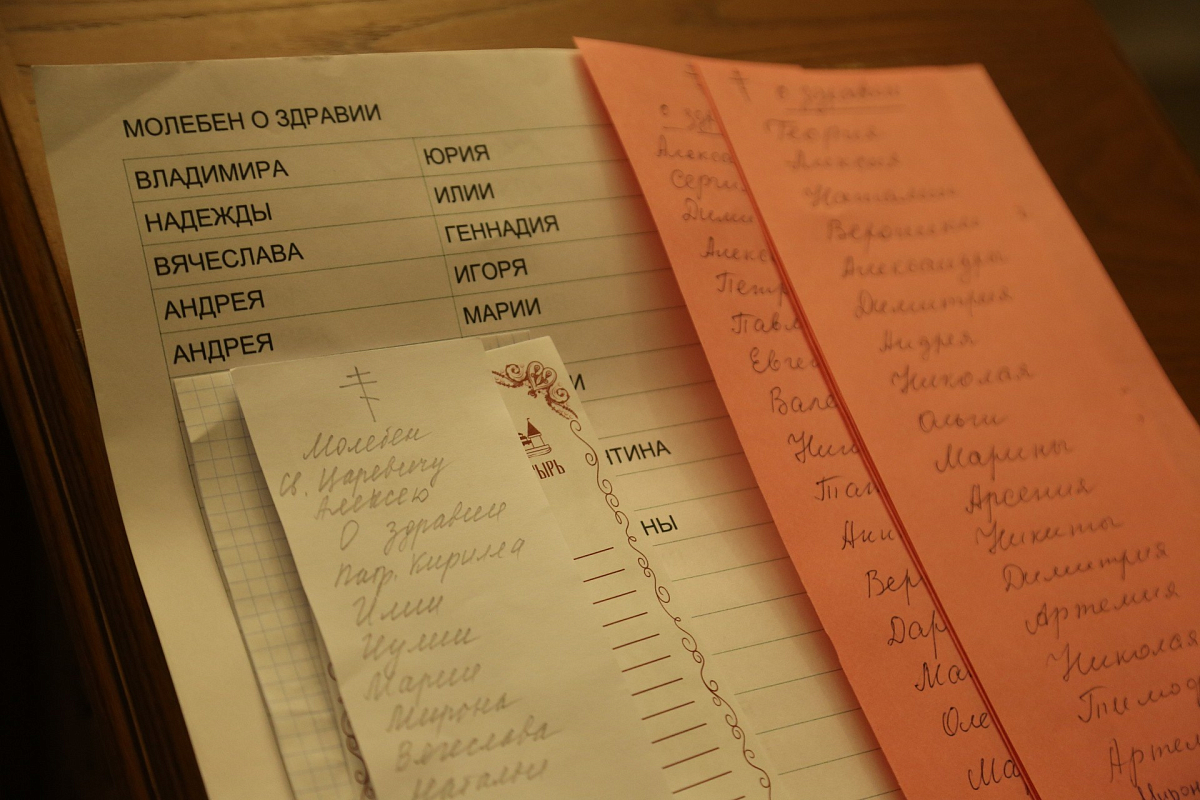 МОЛЕБЕН О ЗДРАВИИ
ВЛАДИМИРА
НАДЕЖДЫ
ВЯЧЕСЛАВА
АНДРЕЯ
АНДРЕЯ
ЮРИЯ
ИЛИИ
ГЕННАДИЯ
ИГОРЯ
МАРИИ
И
ТИНА
НЫ
ЫРЬ
Молебен
св. Царевичу
Алексею
О здравии
Патр. Кирилла
Илии
Иулии
Марии
Мирона
Вячеслава
Наталии
о здр
Алекса
Серги
Дими
Алекс
Петр
Павл
Евге
Вале
Ник
Тат
Анн
Вер
Дар
Ма
Оле
Ма
о здравии
Георгия
Алексия
Наталии
Вероники
Александры
Димитрия
Андрея
Николая
Ольги
Марины
Арсения
Никиты
Димитрия
Артемия
Николая
Тимоф
Артем
Мирон